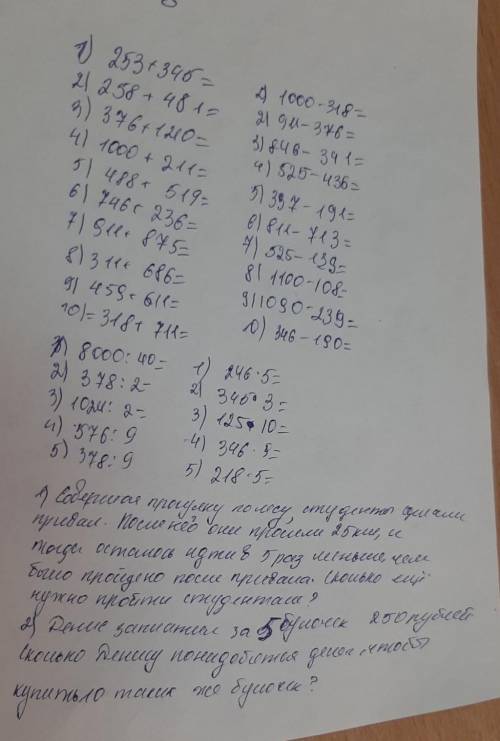 1) 253+345=
2) 258+481=
3) 376+120=
4) 1000+211=
5) 488+519=
6) 746+236=
7) 911+875=
8) 311+686=
9) 459+611=
10)=318+711=
1) 1000-318=
2) 911-376=
3) 846-341=
4) 525-436=
5) 397-191=
6) 811-713=
7) 525-139=
8) 1100-108=
9) 1090-239=
10) 346-190=
1) 8000:40=
2) 378:2=
3) 1024:2=
4) 576:9
5) 378:9
1) 246·5=
2) 345·3=
3) 125·10=
4) 346·5=
5) 218·5=
1) Совершая прогулку по лесу, студенты сделали
привал. После него они прошли 25км, и
тогда осталось идти в 5 раз меньше, чем
было пройдено после привала. Сколько ещё
нужно пройти студентам?
2) Денис заплатил за 5 булочек 250 рублей
Сколько Денису понадобится денег, чтобы
купить 10 таких же булочек?